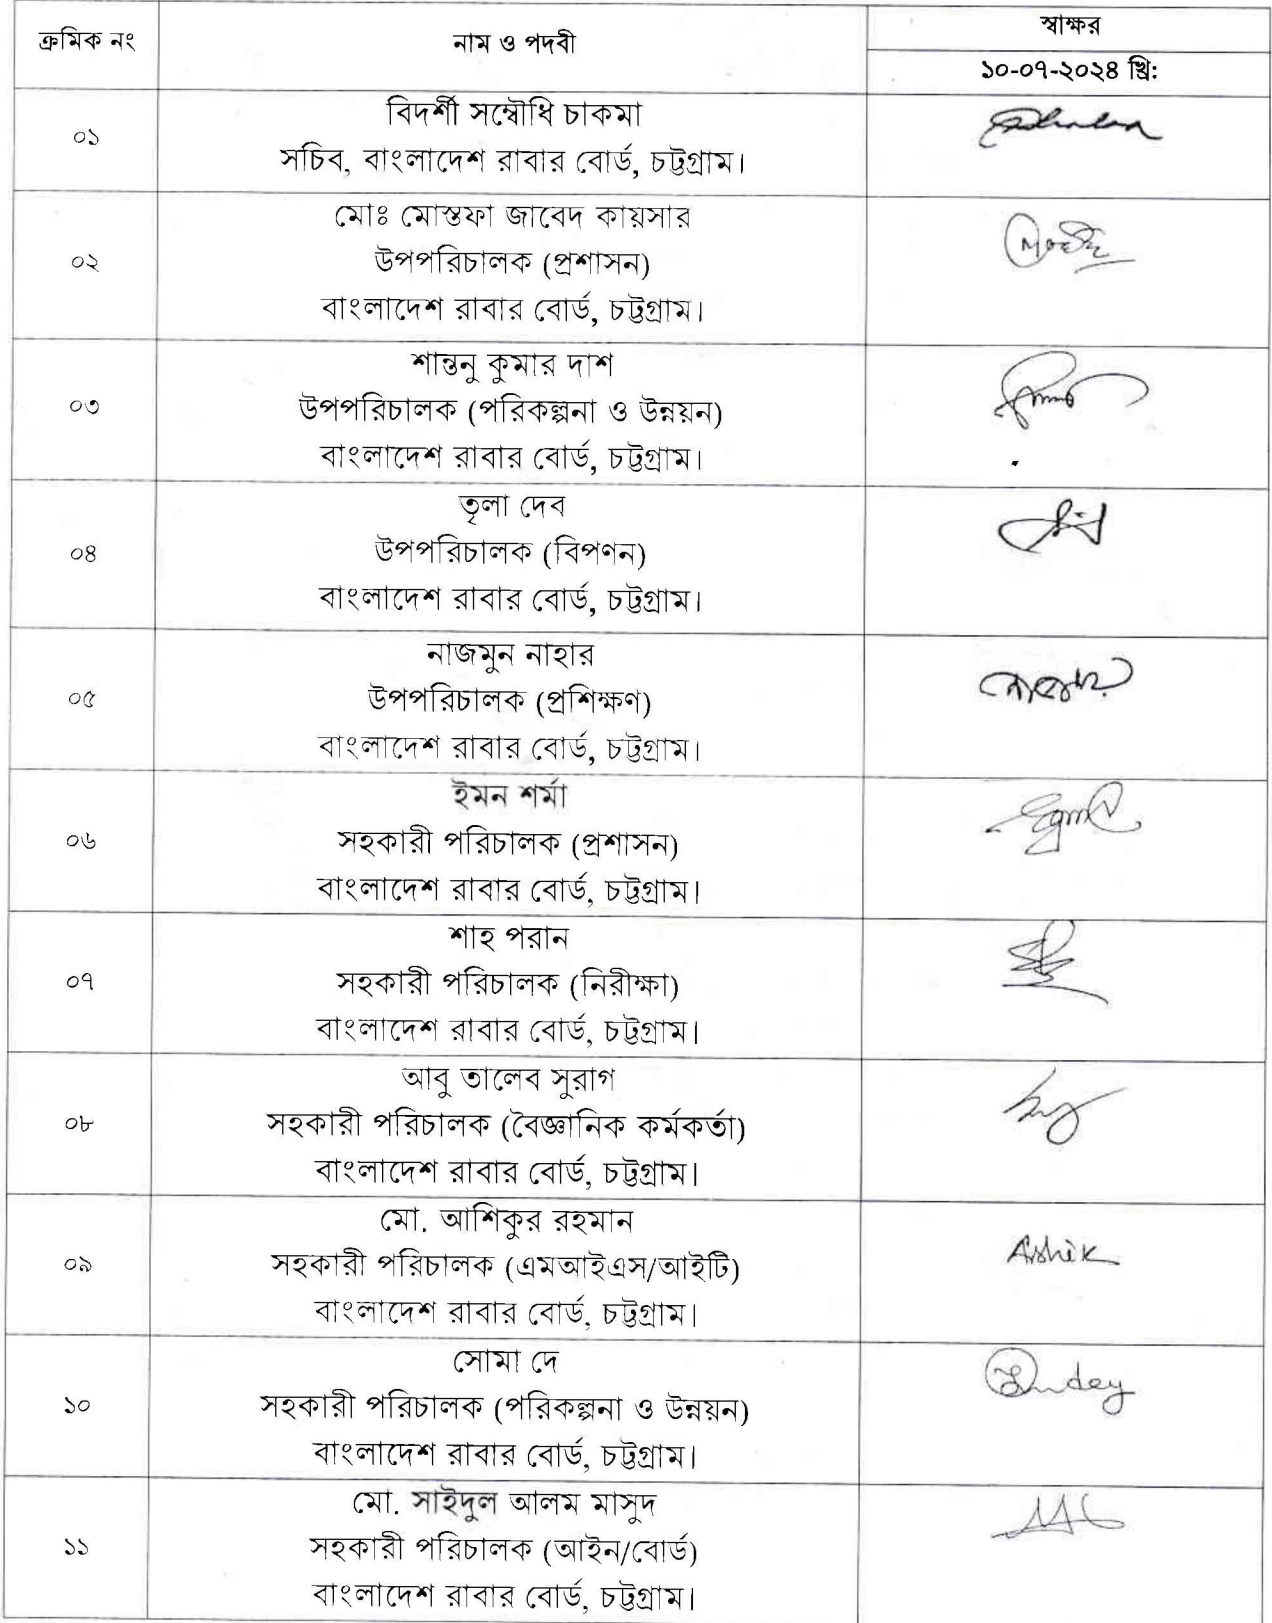 ক্রমিক নং
নাম ও পদবী
স্বাক্ষর
১০-০৭-২০২৪ খ্রি:
০১
বিদর্শী সম্বৌধি চাকমা
সচিব, বাংলাদেশ রাবার বোর্ড, চট্টগ্রাম।
০২
মোঃ মোস্তফা জাবেদ কায়সার
উপপরিচালক (প্রশাসন)
বাংলাদেশ রাবার বোর্ড, চট্টগ্রাম।
০৩
শান্তনু কুমার দাশ
উপপরিচালক (পরিকল্পনা ও উন্নয়ন)
বাংলাদেশ রাবার বোর্ড, চট্টগ্রাম।
০৪
তৃলা দেব
উপপরিচালক (বিপণন)
বাংলাদেশ রাবার বোর্ড, চট্টগ্রাম।
০৫
নাজমুন নাহার
উপপরিচালক (প্রশিক্ষণ)
বাংলাদেশ রাবার বোর্ড, চট্টগ্রাম।
০৬
ইমন শর্মা
সহকারী পরিচালক (প্রশাসন)
বাংলাদেশ রাবার বোর্ড, চট্টগ্রাম।
০৭
শাহ পরান
সহকারী পরিচালক (নিরীক্ষা)
বাংলাদেশ রাবার বোর্ড, চট্টগ্রাম।
০৮
আবু তালেব সুরাগ
সহকারী পরিচালক (বৈজ্ঞানিক কর্মকর্তা)
বাংলাদেশ রাবার বোর্ড, চট্টগ্রাম।
০৯
মো. আশিকুর রহমান
সহকারী পরিচালক (এমআইএস/আইটি)
বাংলাদেশ রাবার বোর্ড, চট্টগ্রাম।
Ashik
১০
সোমা দে
সহকারী পরিচালক (পরিকল্পনা ও উন্নয়ন)
বাংলাদেশ রাবার বোর্ড, চট্টগ্রাম।
১১
মো. সাইদুল আলম মাসুদ
সহকারী পরিচালক (আইন/বোর্ড)
বাংলাদেশ রাবার বোর্ড, চট্টগ্রাম।